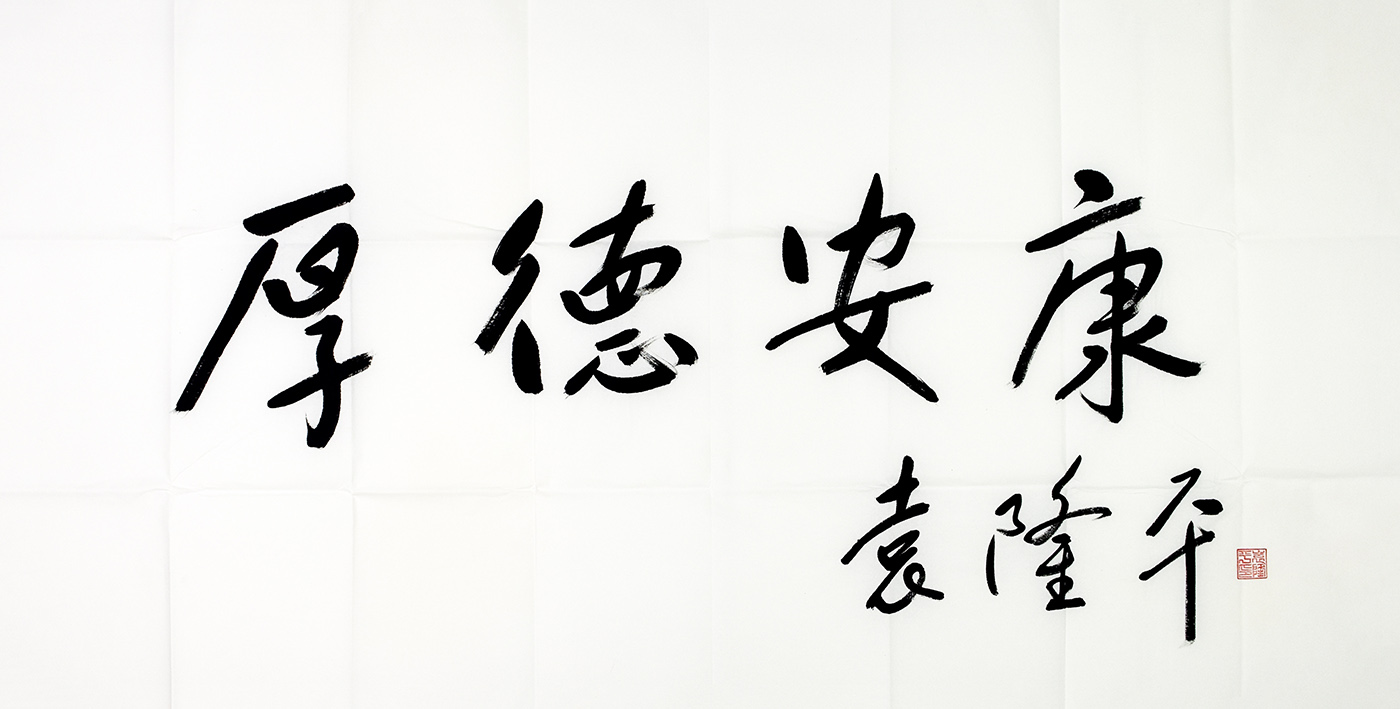 厚德安康
袁隆平